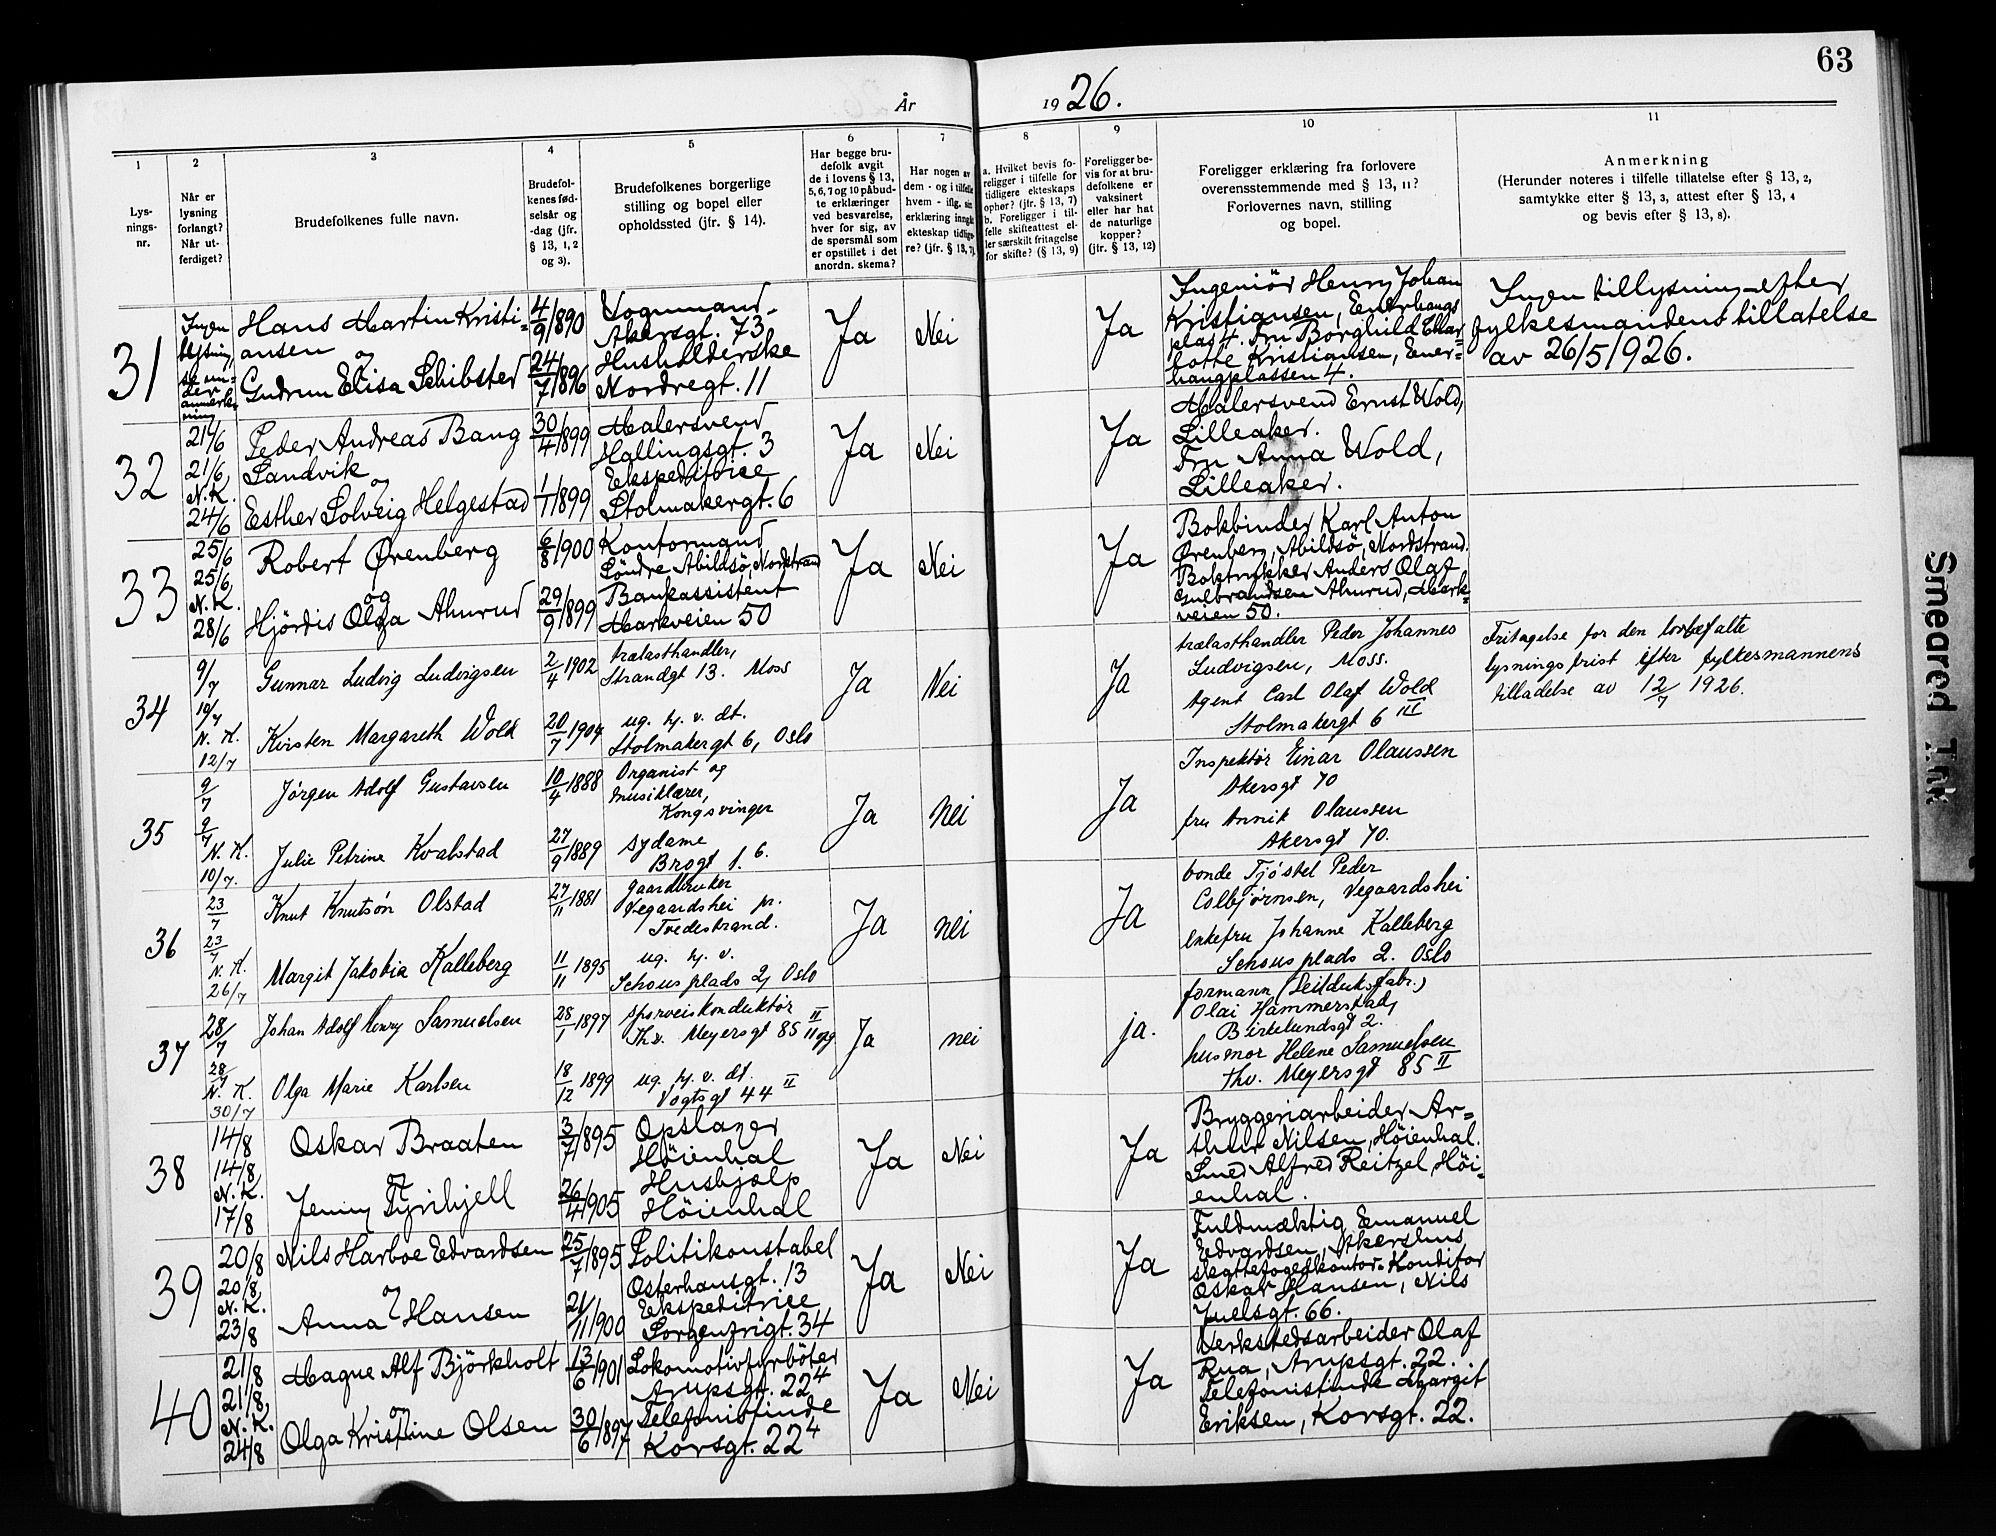 63
År
19 26.
1
2
3
4
5
6
7
8
9
10
11
Lys-
nings-
nr.
Når er
lysning
forlangt?
Når ut-
ferdiget?
Brudefolkenes fulle navn.
Brudefol-
kenes fød-
selsår og
-dag (jfr.
§ 13, 1, 2
og 3).
Brudefolkenes borgerlige
stilling og bopel eller
opholdssted (jfr. § 14).
Har begge bru-
defolk avgit
de i lovens § 13,
5, 6, 7 og 10 påbud-
te erklæringer
ved besvarelse,
hver for sig, av
de spørsmål som
er opstillet i det
anordn. skema?
Har nogen av
dem - og i tilfelle
hvem - iflg. sin
erklæring inngått
ekteskap tidlige-
re? (jfr. § 13, 7)
a. Hvilket bevis fo-
religger i tilfelle for
tidligere ekteskaps
ophør? (jfr. § 13, 7)
b. Foreligger i til-
felle skifteattest el-
ler særskilt fritagelse
for skifte? (§ 13, 9)
Foreligger be-
vis for at bru-
defolkene er
vaksinert
eller har hat
de naturlige
kopper?
(jfr. § 13, 12)
Foreligger erklæring fra forlovere
overensstemmende med § 13, 11?
Forlovernes navn, stilling
og bopel.
Anmerkning
(Herunder noteres i tilfelle tillatelse efter § 13, 2,
samtykke efter § 13, 3, attest efter § 13, 4
og bevis efter § 13, 8).
31
Ingen
lysning
se un-
der
anmerk-
ning
Hans Martin Kristi-
ansen
og
Gudrun Elisa Schibsted
4/9 1890
24/7 1896
Vognmand
Akersgt. 73
Husholderske
Nordregt. 11
Ja
Nei
Ja
Ingeniör Henry Johan
Kristiansen, Enerhaugs
plas 4. Fru Borghild Char
lotte Kristiansen, Ener=
haugplassen 4.
Ingen tillysning efter
fylkesmandens tillatelse
av 26/5 1926.
32
21/6
21/6
N. K.
24/6
Peder Andreas Bang
Sandvik
og
Esther Solveig Helgestad
30/4 1899
1/1 1899
Malersvend
Hallingsgt. 3
Ekspeditrice
Stolmakergt. 6
Ja
Nei
Ja
Malersvend Ernst Wold,
Lilleaker.
Fru Anna Wold,
Lilleaker.
33
25/6
25/6
N. K.
28/6
Robert Ørenberg
og
Hjördis Olga Almrud
6/8 1900
29/9 1899
Kontormand
Söndre Abildsö, Nordstrand
Bankassistent
Markveien 50
Ja
Nei
Ja
Bokbinder Karl Anton
Ørenberg, Abildsö, Nordstrand.
Boktrykker Anders Olaf
Gulbrandsen Almrud, Mark-
veien 50.
34
9/7
10/7
N. K.
12/7
Gunnar Ludvig Ludvigsen
Kirsten Margareth Wold
2/4 1902
20/7 1904
trælasthandler,
Strandgt 13. Moss
ug. hj. v. dt.
Stolmakergt 6, Oslo
Ja
Nei
Ja
trælasthandler Peder Johannes
Ludvigsen, Moss.
Agent Carl Olaf Wold
Stolmakergt 6 III
Fritagelse for den lovbefalte
lysningsfrist efter fylkesmannens
tilladelse av 12/7 1926.
35
9/7
9/7
N. K.
10/7.
Jörgen Adolf Gustavsen
Julie Petrine Kvalstad
10/4 1888
27/9 1889
Organist og
musiklærer,
Kongsvinger
sydame
Brogt 16.
Ja
nei
Ja
Inspektör Einar Olaussen
Akersgt 70
fru Annik Olaussen
Akersgt 70.
36
23/7
23/7
N. K.
26/7
Knut Knutsön Olstad
Margit Jakobia Kalleberg
27/11 1881
11/11 1895
gaardbruker
Vegaardshei pr.
Tvedestrand.
ug. hj. v.
Schous plads 2, Oslo
Ja
nei
Ja
bonde Tjöstel Peder
Colbjörnsen, Vegaardshei
enkefru Johanne Kalleberg
Schous plads 2. Oslo
37
28/7
28/7
N. K.
30/7
Johan Adolf Henry Samuelsen
Olga Marie Karlsen
28/1 1897
18/12 1899
sporveiskonduktör
Thv. Meyersgt 85 II opg
II
ug. hj. v. dt.
Vogtsgt 44 II
Ja
nei
ja.
formann (Seilduksfabr.)
Olai Hammerstad,
Birkelundsgt 2.
husmor Helene Samuelsen
Thv. Meyersgt 85 II
38
14/8
14/8
N. K.
17/8
Oskar Braaten
og
Jenny Tyrihjell
3/7 1895
26/4 1905
Opslager
Höienhal
Hushjælp
Höienhal
Ja
Nei
Ja
Bryggeriarbeider Ar=
thur Nilsen, Höienhal.
Smed Alfred Reitzel, Höi-
enhal.
39
20/8
20/8
N. K.
23/8
Nils Harboe Edvardsen
og
Anna Hansen
25/7 1895
21/11 1900
Politikonstabel
Osterhausgt. 13
Ekspeditrice
Sorgenfrigt. 34
Ja
Nei
Ja
Fuldmæktig Emanuel
Edvardsen, Akershus
skattefogedkontor. Konditor
Oskar Hansen, Nils
Juelsgt. 66.
40
21/8
21/8
N. K.
24/8
Magne Alf Björkholt
og
Olga Kristine Olsen
13/6 1901
30/6 1897
Lokomotivfyrböter
Arupsgt. 22 4
Telefonistinde
Korsgt. 22 4
Ja
Nei
Ja
Verkstedsarbeider Olaf
Rua, Arupsgt. 22.
Telefonistinde Margit
Eriksen, Korsgt. 22.
Smeared Ink